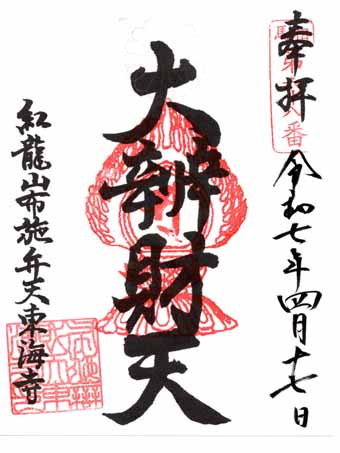 奉拝
令和七年四月十七日
大辨財天
紅龍山布施弁天東海寺